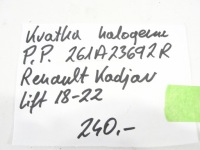 Kvatka halogena
P.P. 261A23692R
Renault Kadjar
lift 18-22
240.-